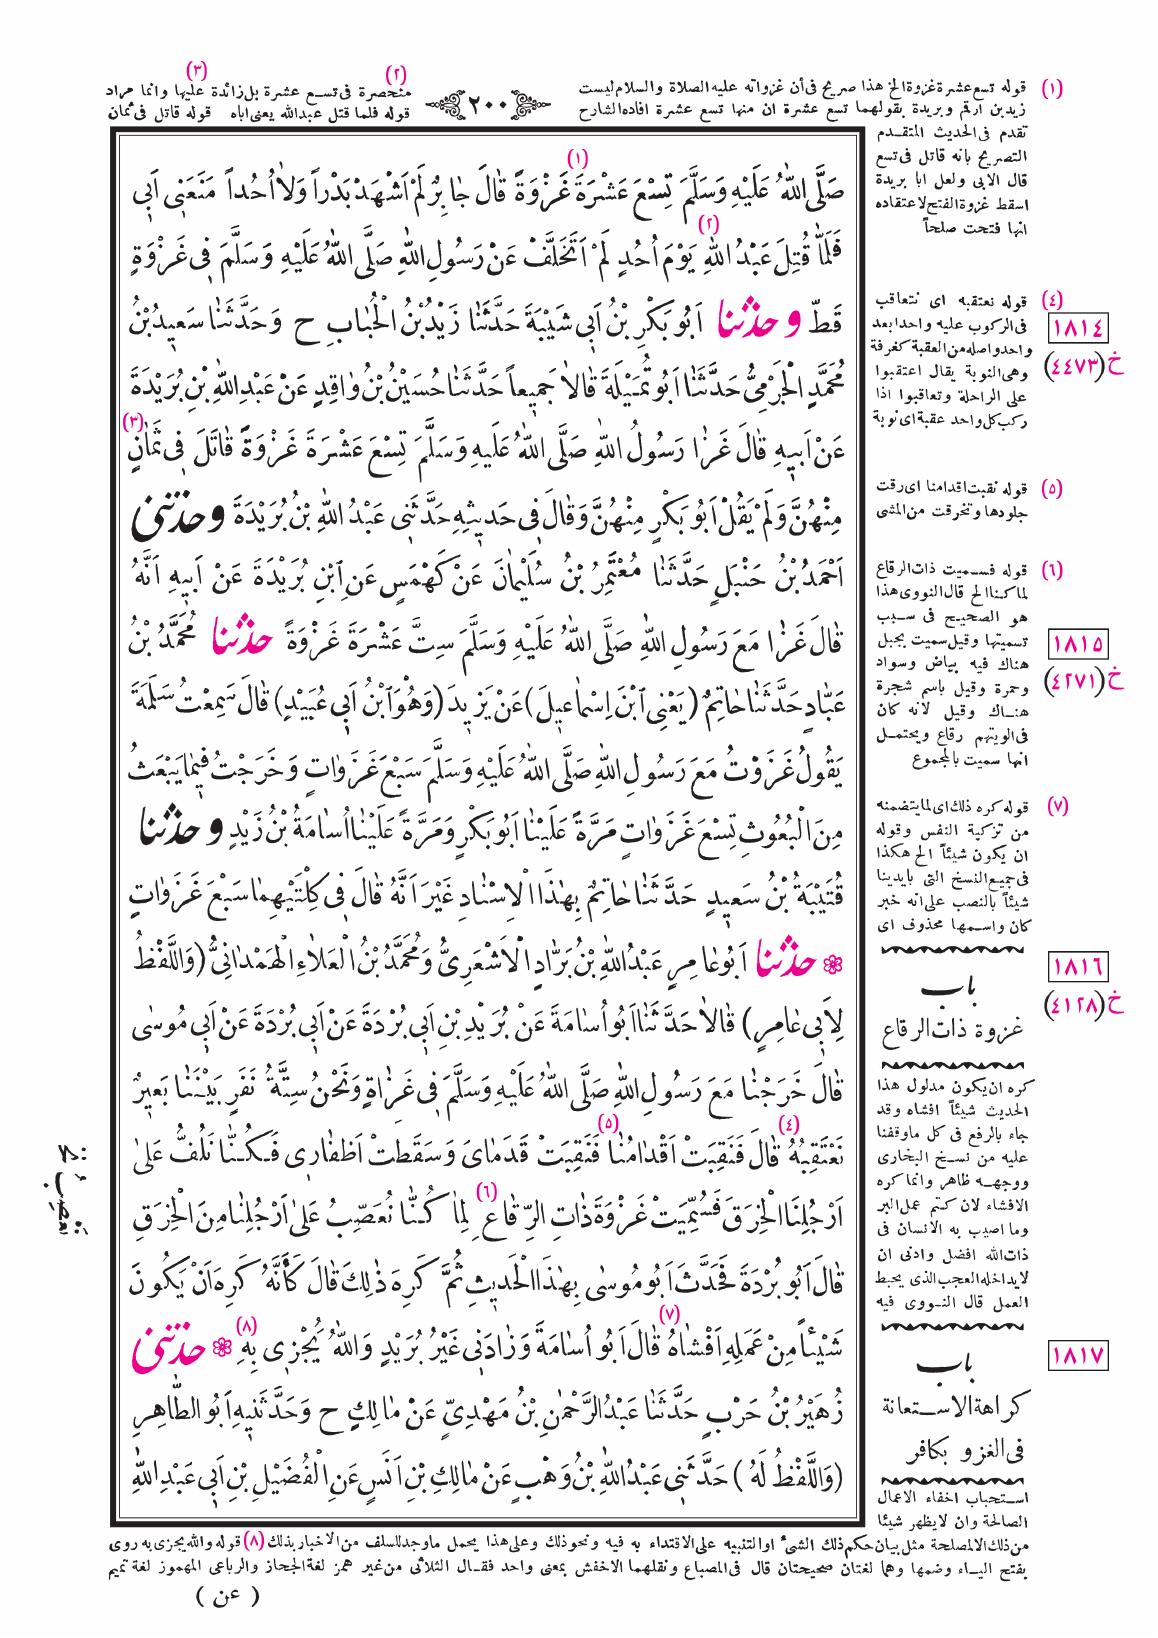 (٣) (٢)
(١) قوله تسع عشرة غزوة الخ هذا صريح فى أن غزواته عليه الصلاة والسلام ليست
﴿٢٠٠﴾
منحصرة فى تسع عشرة بل زائدة عليها وانما مراد
زيد بن ارقم وبريدة بقولهما تسع عشرة ان منها تسع عشرة افاده الشارح
قوله فلما قتل عبدالله يعنى اباه قوله قاتل فى ثمان
تقدم فى الحديث المتقدم
التصريح بانه قاتل فى تسع
قال الابى ولعل ابا بريدة
اسقط غزوة الفتح لاعتقاده
انها فتحت صلحاً
(٤) قوله نعتقبه اى نتعاقب
فى الركوب عليه واحدا بعد
واحد واصله من العقبة كغرفة
وهى النوبة يقال اعتقبوا
على الراحلة وتعاقبوا اذا
ركب كل واحد عقبة اى نوبة
(٥) قوله نقبت اقدامنا اى رقت
جلودها وتخرقت من المشى
(٦) قوله فسميت ذات الرقاع
لما كنا الخ قال النووى هذا
هو الصحيح فى سبب
تسميتها وقيل سميت بجبل
هناك فيه بياض وسواد
وحمرة وقيل باسم شجرة
هناك وقيل لانه كان
فى الويتهم رقاع ويحتمل
انها سميت بالمجموع
(٧) قوله كره ذلك اى لما يتضمنه
من تزكية النفس وقوله
ان يكون شيئاً الخ هكذا
فى جميع النسخ التى بايدينا
شيئاً بالنصب على انه خبر
كان واسمها محذوف اى
باب
غزوة ذات الرقاع
كره ان يكون مدلول هذا
الحديث شيئاً افشاه وقد
جاء بالرفع فى كل ما وقفنا
عليه من نسخ البخارى
ووجهه ظاهر وانما كره
الافشاء لان كتم عمل البر
وما اصيب به الانسان فى
ذات الله افضل وادنى ان
لا يداخله العجب الذى يحبط
العمل قال النووى فيه
باب
كراهة الاستعانة
فى الغزو بكافر
استحباب اخفاء الاعمال
الصالحة وان لا يظهر شيئا
١٨١٤
خ (٤٤٧٣)
١٨١٥
خ (٤٢٧١)
١٨١٦
خ (٤١٢٨)
١٨١٧
صَلَّى اللهُ عَلَيْهِ وَسَلَّمَ تِسْعَ عَشْرَةَ غَزْوَةً (١) قَالَ جَابِرٌ لَمْ اَشْهَدْ بَدْراً وَلَا اُحُداً مَنَعَنِى اَبِى
فَلَمَّا قُتِلَ عَبْدُ اللهِ (٢) يَوْمَ اُحُدٍ لَمْ اَتَخَلَّفْ عَنْ رَسُولِ اللهِ صَلَّى اللهُ عَلَيْهِ وَسَلَّمَ فِى غَزْوَةٍ
قَطُّ وحَدَّثَنَا اَبُو بَكْرِ بْنُ اَبِى شَيْبَةَ حَدَّثَنَا زَيْدُ بْنُ الْحُبَابِ ح وَحَدَّثَنَا سَعِيدُ بْنُ
مُحَمَّدٍ الْجَرْمِىُّ حَدَّثَنَا اَبُو تُمَيْلَةَ قَالَا جَمِيعاً حَدَّثَنَا حُسَيْنُ بْنُ وَاقِدٍ عَنْ عَبْدِ اللهِ بْنِ بُرَيْدَةَ
عَنْ اَبِيهِ قَالَ غَزَا رَسُولُ اللهِ صَلَّى اللهُ عَلَيْهِ وَسَلَّمَ تِسْعَ عَشْرَةَ غَزْوَةً قَاتَلَ فِى ثَمَانٍ (٣)
مِنْهُنَّ وَلَمْ يَقُلْ اَبُو بَكْرٍ مِنْهُنَّ وَقَالَ فِى حَدِيثِهِ حَدَّثَنِى عَبْدُ اللهِ بْنُ بُرَيْدَةَ وحَدَّثَنِى
اَحْمَدُ بْنُ حَنْبَلٍ حَدَّثَنَا مُعْتَمِرُ بْنُ سُلَيْمَانَ عَنْ كَهْمَسٍ عَنِ ابْنِ بُرَيْدَةَ عَنْ اَبِيهِ اَنَّهُ
قَالَ غَزَا مَعَ رَسُولِ اللهِ صَلَّى اللهُ عَلَيْهِ وَسَلَّمَ سِتَّ عَشْرَةَ غَزْوَةً حَدَّثَنَا مُحَمَّدُ بْنُ
عَبَّادٍ حَدَّثَنَا حَاتِمٌ (يَعْنِى ابْنَ اِسْمَاعِيلَ) عَنْ يَزِيدَ (وَهُوَ ابْنُ اَبِى عُبَيْدٍ) قَالَ سَمِعْتُ سَلَمَةَ
يَقُولُ غَزَوْتُ مَعَ رَسُولِ اللهِ صَلَّى اللهُ عَلَيْهِ وَسَلَّمَ سَبْعَ غَزَوَاتٍ وَخَرَجْتُ فِيمَا يَبْعَثُ
مِنَ الْبُعُوثِ تِسْعَ غَزَوَاتٍ مَرَّةً عَلَيْنَا اَبُو بَكْرٍ وَمَرَّةً عَلَيْنَا اُسَامَةُ بْنُ زَيْدٍ وحَدَّثَنَا
قُتَيْبَةُ بْنُ سَعِيدٍ حَدَّثَنَا حَاتِمٌ بِهٰذَا الْاِسْنَادِ غَيْرَ اَنَّهُ قَالَ فِى كِلْتَيْهِمَا سَبْعَ غَزَوَاتٍ
❀ حَدَّثَنَا اَبُو عَامِرٍ عَبْدُ اللهِ بْنُ بَرَّادٍ الْاَشْعَرِىُّ وَمُحَمَّدُ بْنُ الْعَلَاءِ الْهَمْدَانِىُّ (وَاللَّفْظُ
لِاَبِى عَامِرٍ) قَالَا حَدَّثَنَا اَبُو اُسَامَةَ عَنْ بُرَيْدِ بْنِ اَبِى بُرْدَةَ عَنْ اَبِى بُرْدَةَ عَنْ اَبِى مُوسَى
قَالَ خَرَجْنَا مَعَ رَسُولِ اللهِ صَلَّى اللهُ عَلَيْهِ وَسَلَّمَ فِى غَزَاةٍ وَنَحْنُ سِتَّةُ نَفَرٍ بَيْنَنَا بَعِيرٌ
نَعْتَقِبُهُ (٤) قَالَ فَنَقِبَتْ اَقْدَامُنَا (٥) فَنَقِبَتْ قَدَمَاىَ وَسَقَطَتْ اَظْفَارِى فَكُنَّا نَلُفُّ عَلَى
اَرْجُلِنَا الْخِرَقَ فَسُمِّيَتْ غَزْوَةَ ذَاتِ الرِّقَاعِ (٦) لِمَا كُنَّا نُعَصِّبُ عَلَى اَرْجُلِنَا مِنَ الْخِرَقِ
قَالَ اَبُو بُرْدَةَ فَحَدَّثَ اَبُو مُوسَى بِهٰذَا الْحَدِيثِ ثُمَّ كَرِهَ ذٰلِكَ قَالَ كَاَنَّهُ كَرِهَ اَنْ يَكُونَ
شَيْئاً مِنْ عَمَلِهِ اَفْشَاهُ (٧) قَالَ اَبُو اُسَامَةَ وَزَادَنِى غَيْرُ بُرَيْدٍ وَاللهُ يُجْزِى بِهِ (٨) ❀ حَدَّثَنِى
زُهَيْرُ بْنُ حَرْبٍ حَدَّثَنَا عَبْدُ الرَّحْمٰنِ بْنُ مَهْدِىٍّ عَنْ مَالِكٍ ح وَحَدَّثَنِيهِ اَبُو الطَّاهِرِ
(وَاللَّفْظُ لَهُ) حَدَّثَنِى عَبْدُ اللهِ بْنُ وَهْبٍ عَنْ مَالِكِ بْنِ اَنَسٍ عَنِ الْفُضَيْلِ بْنِ اَبِى عَبْدِ اللهِ
من ذلك الا لمصلحة مثل بيان حكم ذلك الشئ او التنبيه على الاقتداء به فيه ونحو ذلك وعلى هذا يحمل ما وجد للسلف من الاخبار بذلك (٨) قوله والله يجزى به روى
بفتح الياء وضمها وهما لغتان صحيحتان قال فى المصباح ونقلهما الاخفش بمعنى واحد فقال الثلاثى من غير همز لغة الحجاز والرباعى المهموز لغة تميم
( عن )